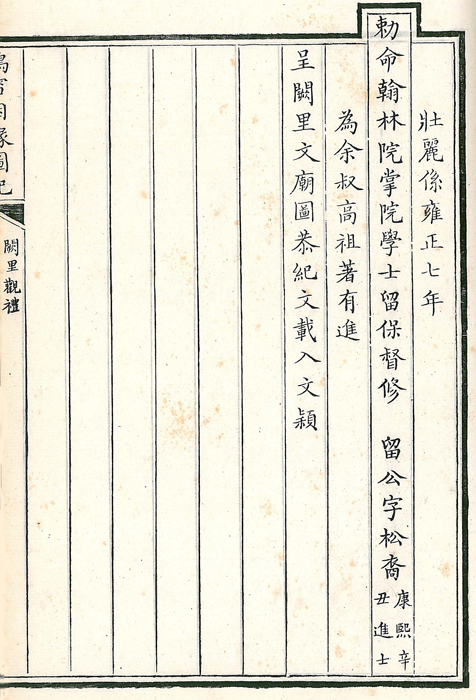 壯麗係雍正七年
勅命翰林院掌院學士留保督修　留公字松裔
康熙辛
丑進士
為余叔高祖著有進
呈闕里文廟圖恭紀文載入文穎
因緣圖記
闕里觀禮